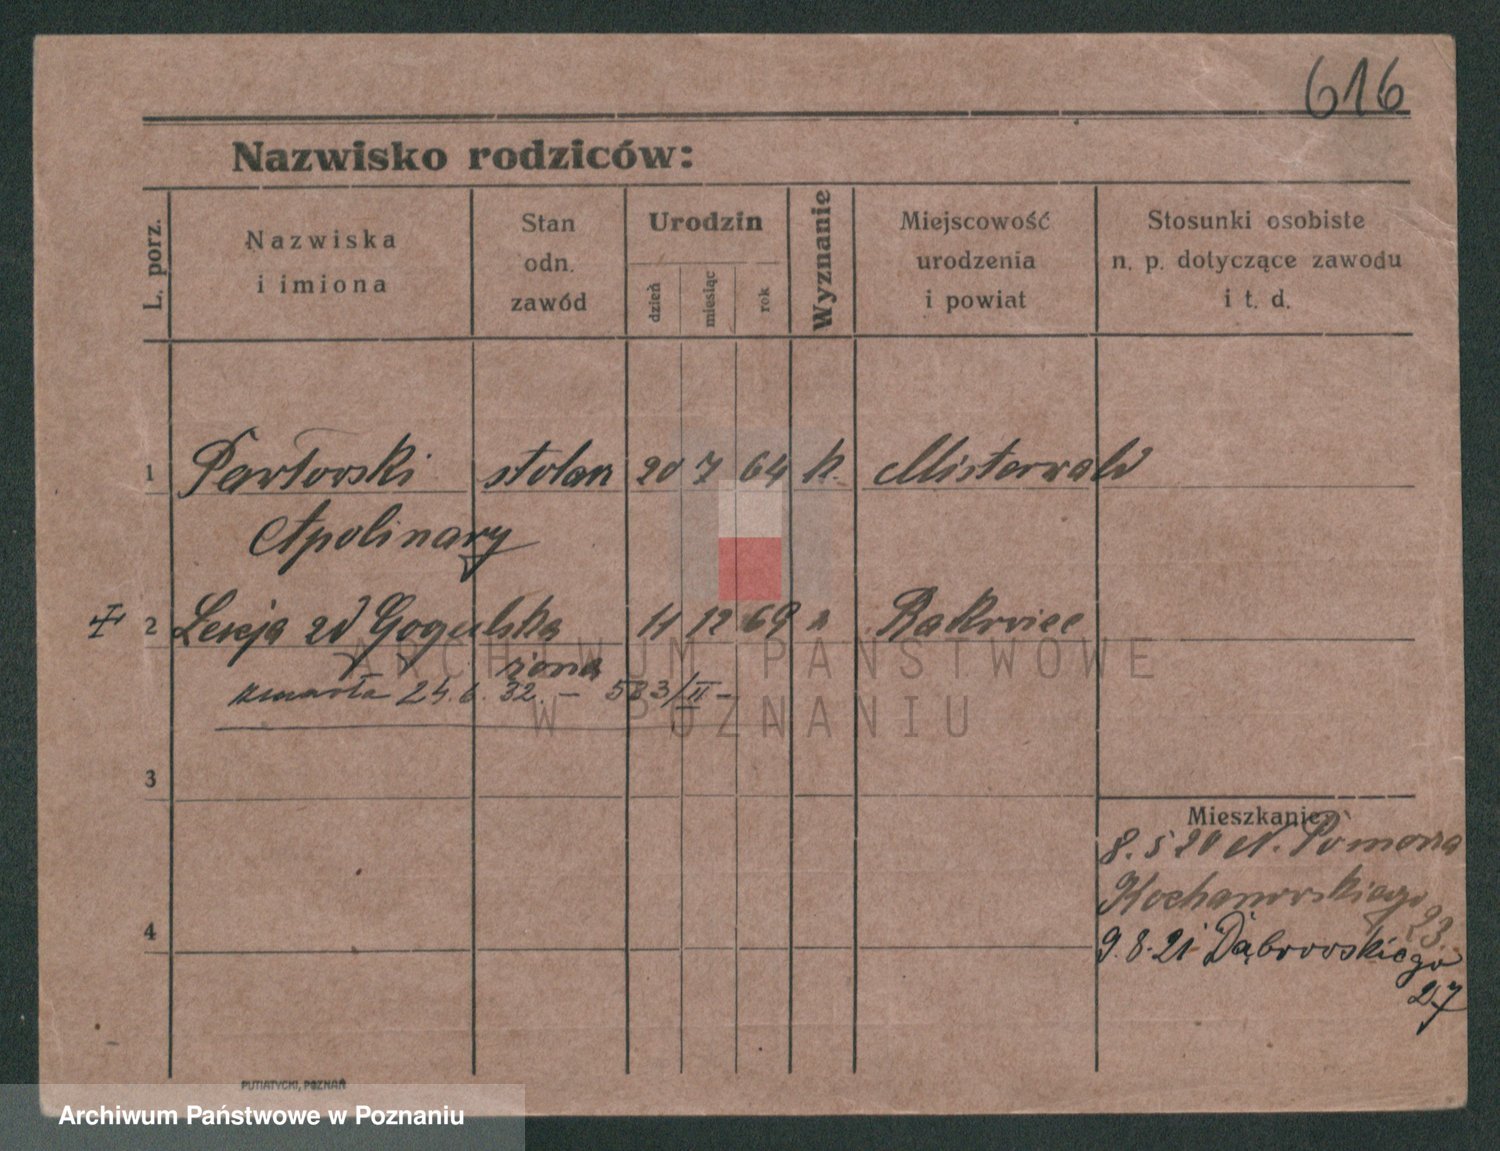 616
Nazwisko rodziców:
L. porz.
Nazwiska
i imiona
Stan
odn.
zawód
Urodzin
dzień
miesiąc
rok
Wyznanie
Miejscowość
urodzenia
i powiat
Stosunki osobiste
n. p. dotyczące zawodu
i t. d.
1 Pawłowski stolarz 20 7 64 k. Misterwald
Apolinary
2 zd Gogulska 11 12 69 Rakowiec
żona
zmarła 24.6.32. – 583/II –
3
Mieszkanie
8.5 20 N. Pomorza
Kochanowskiego
23.
4
9.8.21 Dąbrowskiego
27
PUTIATYCKI, POZNAŃ
ARCHIWUM PAŃSTWOWE
W POZNANIU
Archiwum Państwowe w Poznaniu